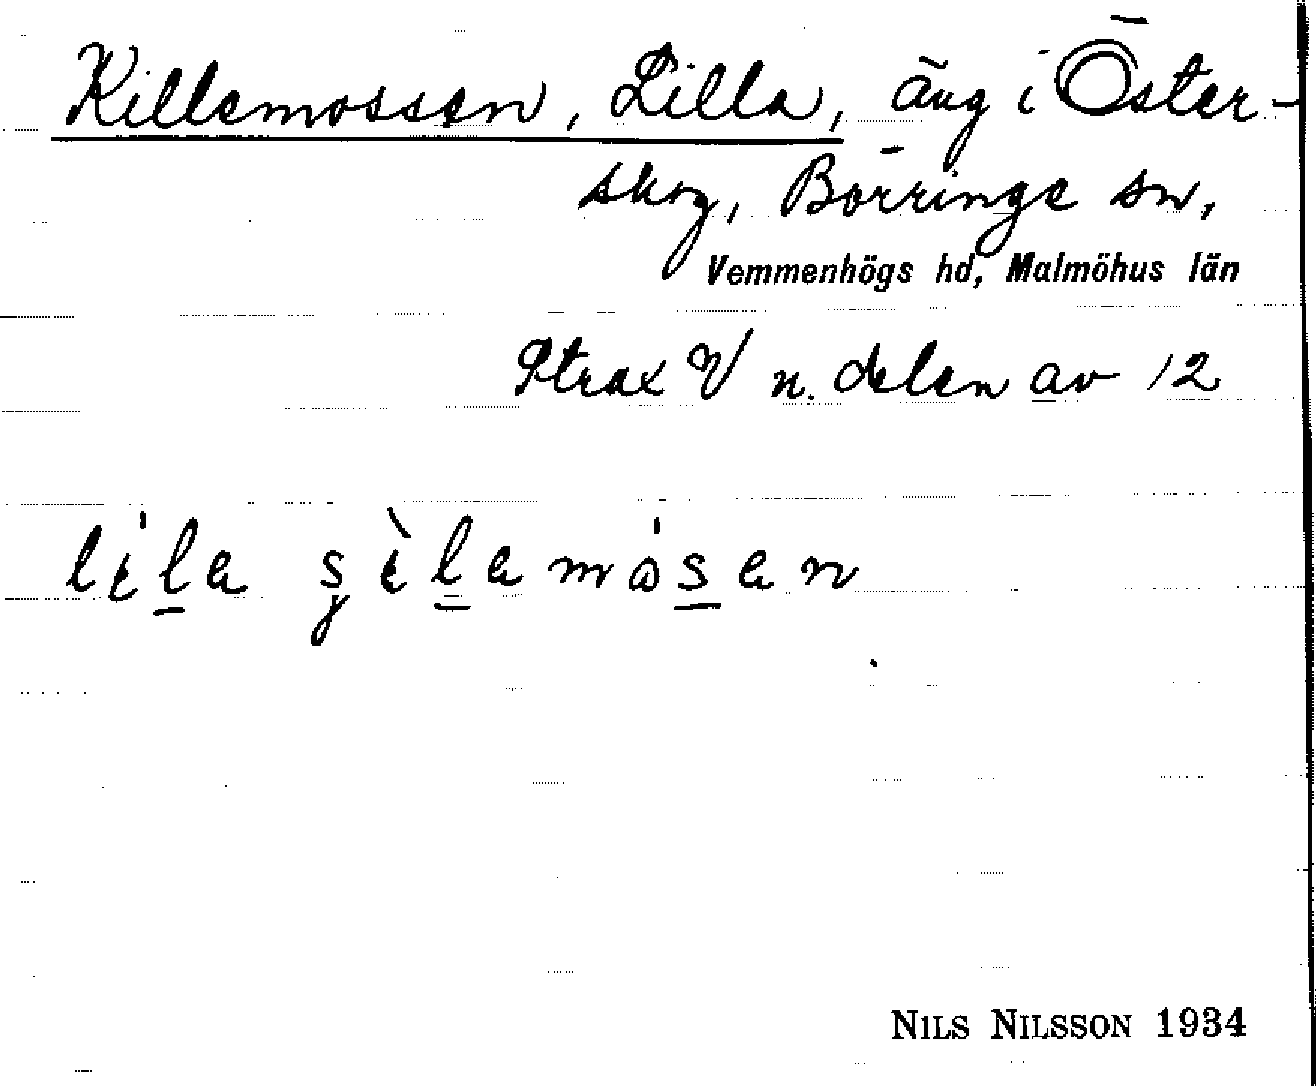 Killemossen, Lilla, äng i Öster-
skog, Börringe sn,
Vemmenhögs hd, Malmöhus län
Strax V n. delen av 12
lila
NILS NILSSON 1934